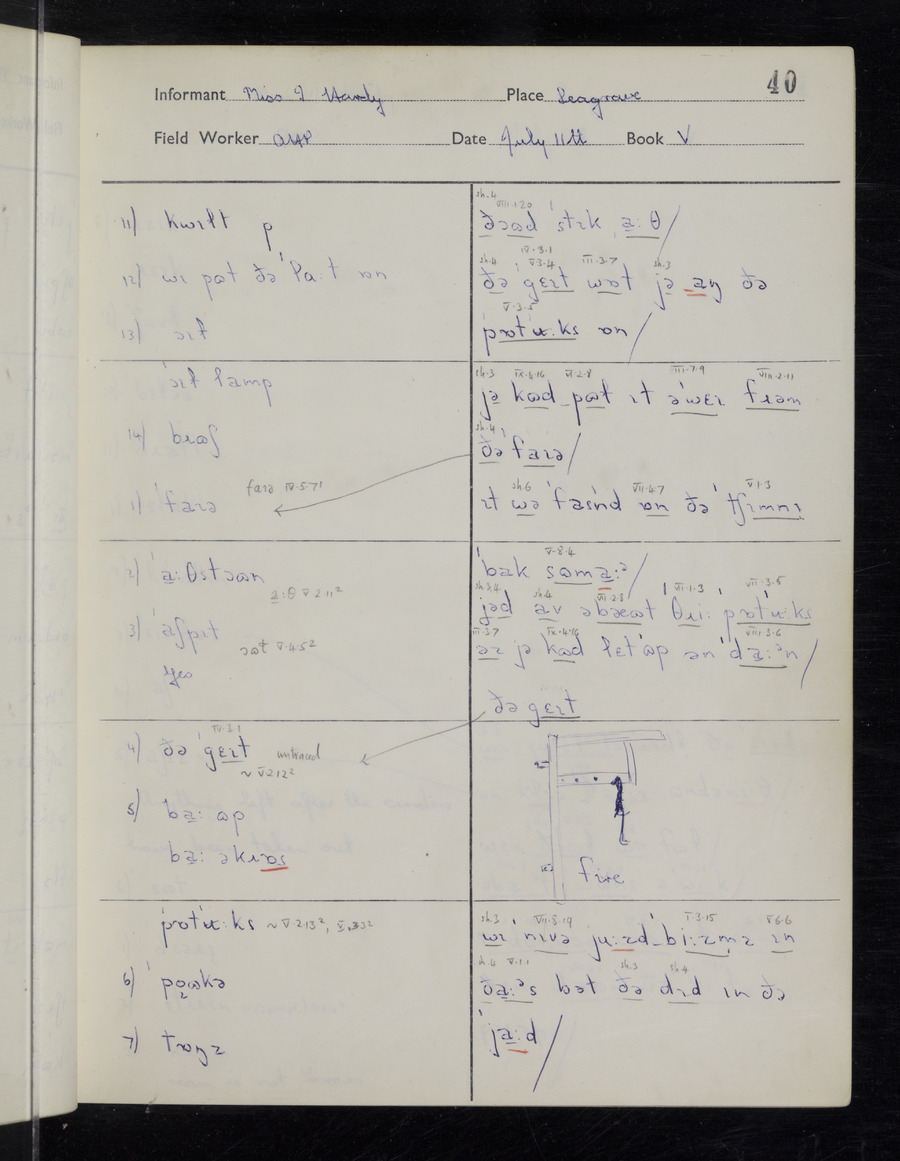 40
Informant Miss J Hardy Place Seagrave
Field Worker Date July 11th Book V
11) kwɪłt p
12) wɪ pʊt ðə ˈlaɪt ɒn
13) ɔɪł
ˈɔɪł lamp
14) bɹʊʃ
faɪə IV·5·7¹
1) ˈfaɪə
2) ˈa̱:θstɔən
a̱:θ V 2·11²
3) aʃpɪt
ɔət V·4·5²
Yes
IV·3·1
4) ðə ˈgɛɪt untraced
~ V 2·12²
5) ba̱: ʊp
ba̱: əkɹɒs
ˈpɒtʉ:ks ~ V 2·13², V·3·3²
6) ˈpo̞ʊkə
7) tɒŋz
sh.4 VIII·1·20
ðɔəd ˈstɪk a̱:θ/
sh.4 IV·3·1 V·3·4 III·3·7 sh.3
ðə gɛɪt wɒt jə aŋ ðə
V·3·5
ˈpɒtʉ:ks ɒn/
sh.3 IX·4·16 VI·2·8 III·7·9 VIII·2·11
jə kʊd pʊt ɪt əˈwɛɪ fɹəm
sh.4
ðə ˈfaɪə/
sh.6 VII·4·7 V·1·3
ɪt wə ˈfasn̩d ɒn ðə ˈtʃɪmnɪ
V·8·4
ˈbak sʊma̱:ᵊ/
sh.3,4 sh.4 VII·2·8 VII·1·3 VII·3·5
jəd av əbæʊt θɹi: pɒtʉ:ks
III·3·7 IX·4·16 VII·3·6
əz jə kʊd lɛt ʊp ən ˈda̱:ᵊn/
ðə gɛɪt
fire
sh.3 VII·3·19 I·3·15 V·6·6
wɪ ˈnɪvə jʉ:zd bi:zmz ɪn
sh.4 V·1·1 sh.3 sh.4
ða̱:ᵊs bət ðə dɪd ɪn ðə
ˈja̱:d/